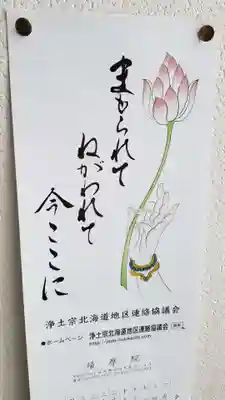 まもられて
ねがわれて
今ここに
浄土宗北海道地区連絡協議会
●ホームページ 浄土宗北海道地区連絡協議会 検索